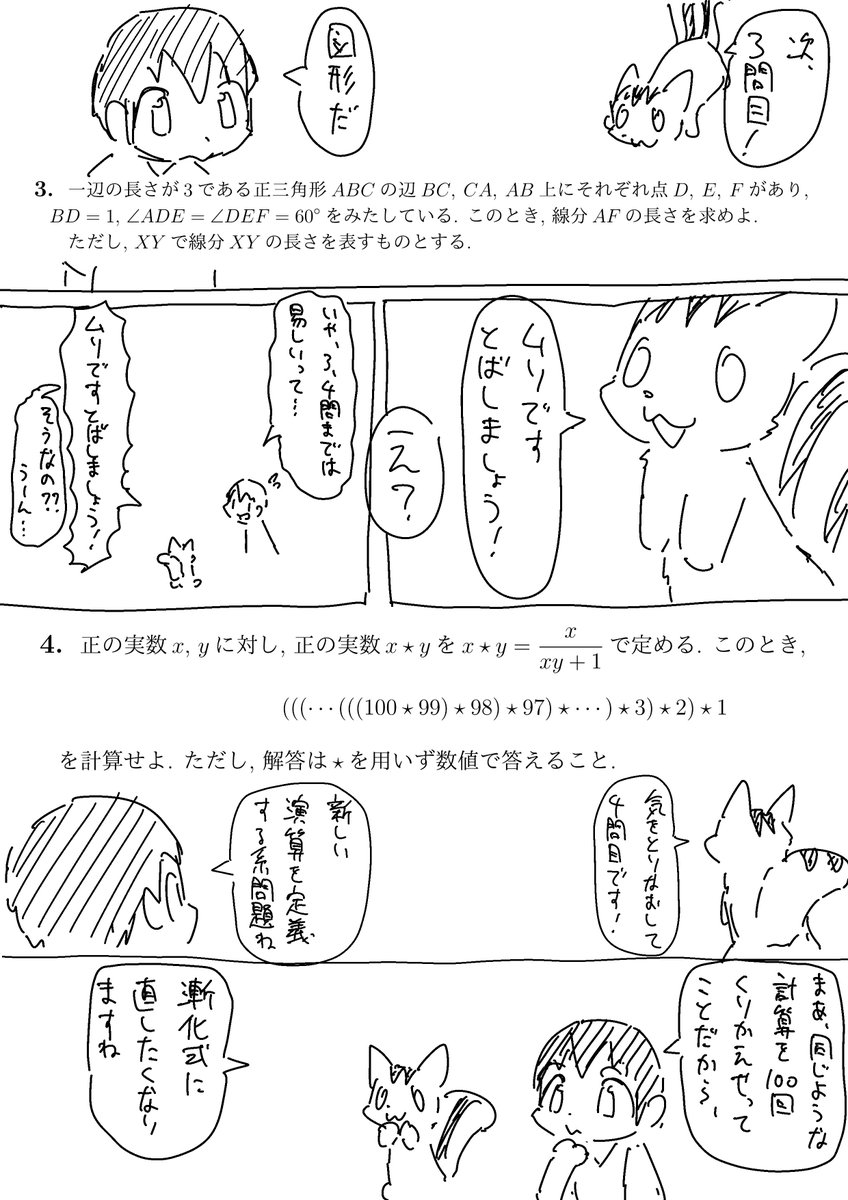 次、
3問目!
図形だ
3. 一辺の長さが 3 である正三角形 ABC の辺 BC, CA, AB 上にそれぞれ点 D, E, F があり,
BD = 1, ∠ADE = ∠DEF = 60° をみたしている. このとき, 線分 AF の長さを求めよ.
ただし, XY で線分 XY の長さを表すものとする.
ムリです
とばしましょう!
え?
いや、3、4問までは
易しいって…
ムリですとばしましょう!
そうなの??
うーん…
4. 正の実数 x, y に対し, 正の実数 x ⋆ y を x ⋆ y = x/(xy + 1) で定める. このとき,
(((⋯(((100 ⋆ 99) ⋆ 98) ⋆ 97) ⋆ ⋯) ⋆ 3) ⋆ 2) ⋆ 1
を計算せよ. ただし, 解答は ⋆ を用いず数値で答えること.
気をとりなおして
4問目です!
新しい
演算を定義
する系問題ね
まあ、同じような
計算を100回
くりかえやって
ことだから、
漸化式に
直したくなり
ますね